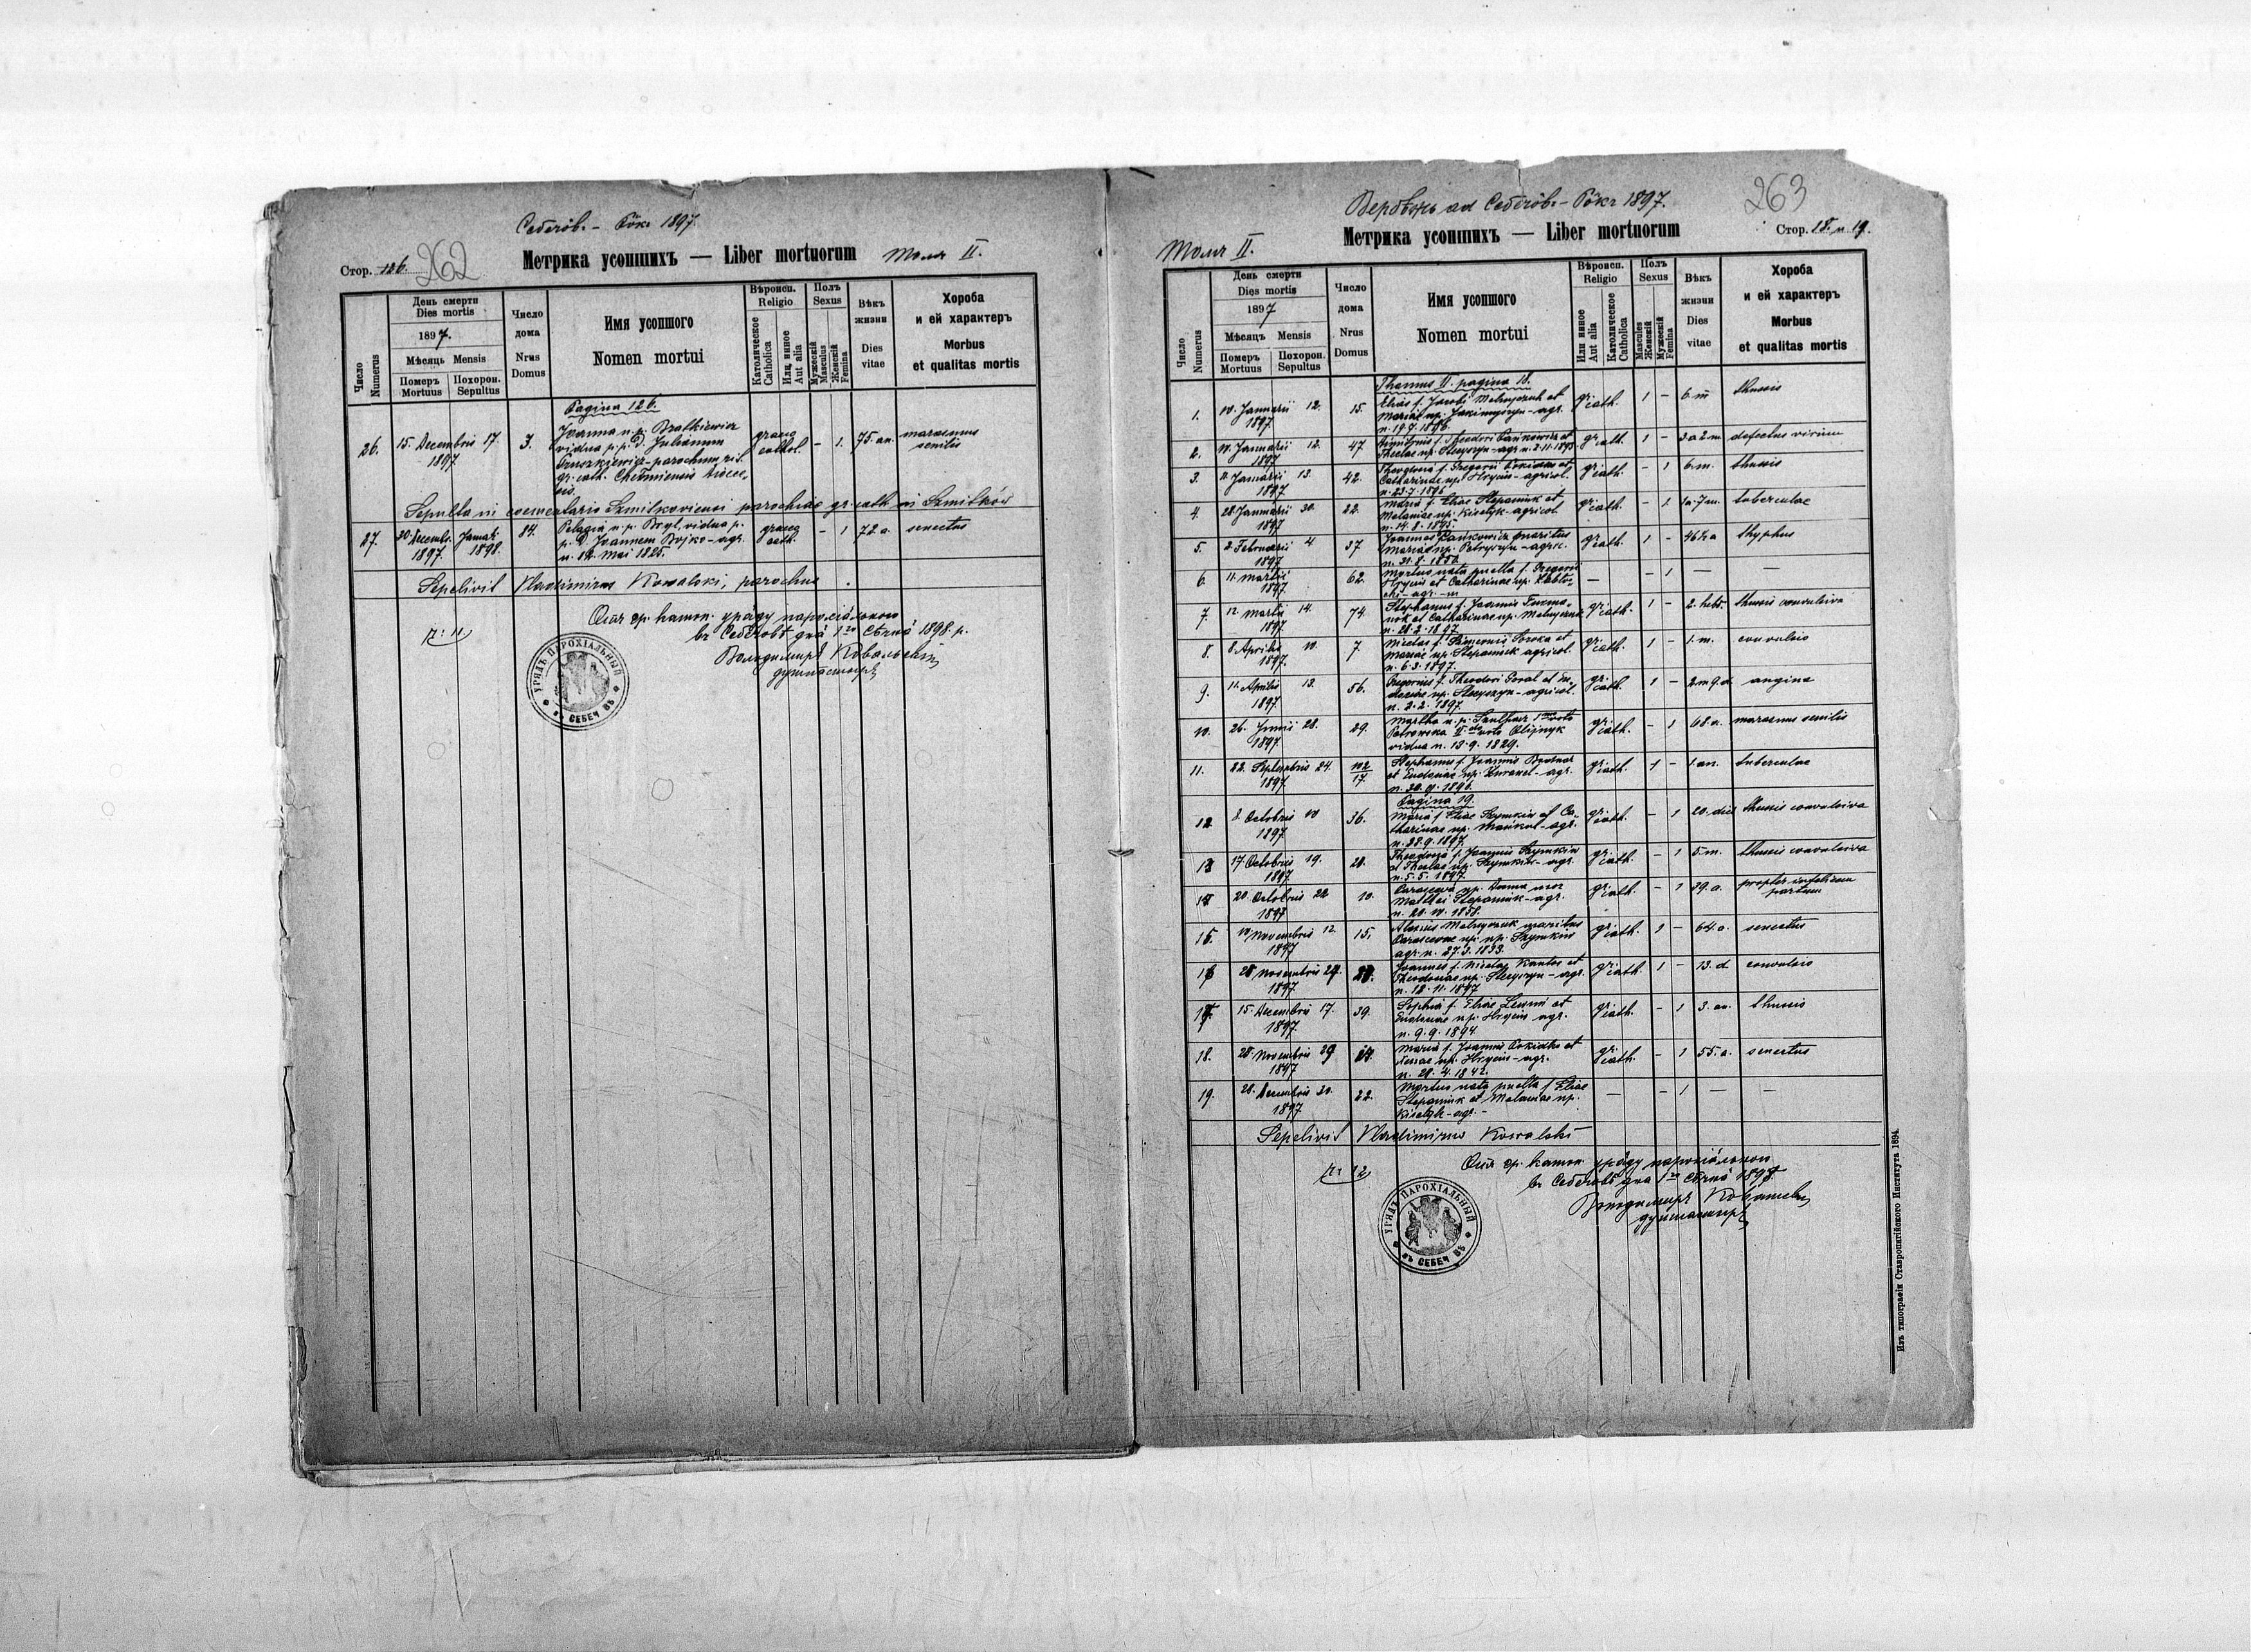 Себечôвъ – Рôкъ 1897
Стор. 126.
262
Метрика усопшихъ — Liber mortuorum
Томъ II.
Число
Numerus
День смерти
Dies mortis
1897.
Мѣсяць Mensis
Померъ
Mortuus
Похорон.
Sepultus
Число
дома
Nrus
Domus
Имя усопшого
Nomen mortui
Вѣроисп.
Religio
Католическое
Catholica
Илц инное
Aut alia
Полъ
Sexus
Мужескій
Masculus
Женскій
Femina
Вѣкъ
жизни
Dies
vitae
Хороба
и ей характеръ
Morbus
et qualitas mortis
Pagina 126.
26. 15. Decembris 17. 1897. 3.
Joanna n. p. Bratkiewicz
vidua p. p. D. Julianum
Pruszkiewicz – parochum
gr. cath. Chełmiensis dioece-
sis.
graeco cathol. – 1. 75. an. marasmus senilis
Sepulta in coemetario Szmitkoviensi parochiae gr. cath. in Szmitków
27. 30 Decembr. 1897. Januar. 1898. 84.
Pelagia n. p. Bryl, vidua p.
p. D. Joannem Bojko – agr.
n. 14. Mai 1825.
graeco cath. – 1 72 a. senectus
Sepelivit Vladimirus Kowalski, parochus.
Ч: 11
Отъ гр. катол. уряду парохіяльного
въ Себечовѣ дня 1го Сѣчня 1898. р.
Володимиръ Ковальскій
душпастыръ
УРЯДЪ ПАРОХІАЛЬНЫЙ
въ СЕБЕЧ ВѢ
Вербѣжь ad Себечôвъ – Рôкъ 1897.
263
Томъ II.
Метрика усопшихъ — Liber mortuorum
Стор. 18. и 19.
Число
Numerus
День смерти
Dies mortis
1897
Мѣсяць Mensis
Померъ
Mortuus
Похорон.
Sepultus
Число
дома
Nrus
Domus
Имя усопшого
Nomen mortui
Вѣроисп.
Religio
Или инное
Aut alia
Католическое
Catholica
Полъ
Sexus
Masculus
Женскій
Мужескій
Femina
Вѣкъ
жизни
Dies
vitae
Хороба
и ей характеръ
Morbus
et qualitas mortis
Thomus II. pagina 18.
1. 10. Januarii 12. 1897 15.
Elias f. Jacobi et
Mariae np. – agr.
n. 19.7. 1896.
gr. cath. 1 – 6. m thussis
2. 11. Januarii 13. 1897 47.
f. Theodori Pankowicz et
Theclae np. Steczyszyn – agr. n. 2.11.1893
gr. cath. 1 – 3 a 2 m defectus virium
3. 11. Januarii 13. 1897 42.
Theodora f. Gregorii et
Catharinae np. Hryciu – agricol.
n. 23.7. 1896
gr. cath. – 1 6. m. thussis
4. 28. Januarii 30. 1897 22.
Maria f. Eliae Stepaniuk et
Melaniae np. Kisełyk – agricol.
n. 14. 8. 1895.
gr. cath. – 1 1a 7 m. tuberculae
5. 2. Februarii 4 1897 37
Joannes Pankowicz maritus
Mariae np. – agric.
n. 31. 8. 1850.
gr. cath. 1 – 46½ a thyphus
6. 11. Martii 1897. 62.
Mortua nata puella f. Gregorii
Hryciu et Catharinae np.
– agr. –
— – 1 — —
7. 12. Martii 14. 1897. 74.
Stephanus f. Joannis
et Catharinae np.
n. 28.2.1897.
gr. cath. 1 – 2. hebd. thussis convulsiva
8. 8. Aprilis 10. 1897. 7.
Nicolas f. Simeonis Soroka et
Mariae np. Stepaniuk agricol.
n. 6.3. 1897.
gr. cath. 1 – 1. m. convulsio
9. 11. Aprilis 13. 1897. 56.
Gregorius f. Theodori Goral et
np. Steczyszyn – agricol.
n. 2. 2. 1897.
gr. cath. 1 – 2 m 9. d. angina
10. 26. Junii 28. 1897. 29.
Martha n. p. 1mo voto
Petrowska IIdo voto Olijnyk
vidua n. 13. 9. 1829.
gr. cath. – 1 68 a. marasmus senilis
11. 22. Septembris 24. 1897. 102/17.
Stephanus f. Joannis
et Eudociae np. – agr.
n. 30. 9. 1896.
gr. cath. 1 – 1 an. tuberculae
Pagina 19.
12 8. Octobris 10 1897 36.
Maria f. Eliae Szymkiw et Ca-
tharinae np. – agr.
n. 28.9.1897.
gr. cath. – 1 20. dies thussis convulsiva
13 17 Octobris 19. 1897 28.
Theodora f. Joannis Szymkiw
et Theclae np. Szymkiw – agr.
n. 5. 5. 1897.
gr. cath. – 1 5. m. thussis convulsiva
14 20. Octobris 22 1897 10.
Parasceva np. uxor
Matthei Stepaniuk – agr.
n. 20. 10. 1858.
gr. cath. – 1 39. a. propter infelicem partum
15. 10 Novembris 12. 1897 15.
Alexius maritus
Parascevae np. np. Szymkiw
agr. n. 27.3. 1833.
gr. cath. 1 – 64. a. senectus
16 28 Novembris 29. 1897 28.
Joannes f. Nicolai Kantor et
Theodosiae np. Steczyszyn – agr.
n. 12. 11. 1897
gr. cath. 1 – 13. d. convulsio
17. 15. Decembris 17. 1897 39.
Sophia f. Eliae et
Eudociae np. Hryciu agr.
n. 9. 9. 1894
gr. cath. – 1 3. an. thussis
18. 28 Novembris 29 1897
Maria f. Joannis et
np. Hryciu – agr.
n. 20. 4. 1842.
gr. cath. – 1 55. a. senectus
19. 28. Decembris 30. 1897 22.
Mortua nata puella f. Eliae
Stepaniuk et Melaniae np.
Kisełyk – agr. –
— – 1 — —
Sepelivit Vladimirus Kowalski
Ч: 12
Отъ гр. катол. уряду парохіяльного
въ Себечовѣ дня 1го Сѣчня 1898.
Володимиръ Ковальскій
душпастыръ
УРЯДЪ ПАРОХІАЛЬНЫЙ
въ СЕБЕЧ ВѢ
Изъ типографіи Ставропигійского Института 1894.